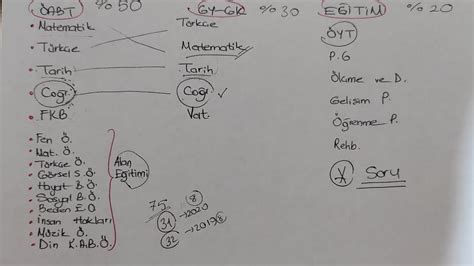 ÖABT % 50
• Matematik
• Türkçe
• Tarih
• Coğr.
• FKB
• Fen Ö.
• Mat. Ö.
• Türkçe Ö.
• Görsel S.Ö
• Hayat B.Ö
• Sosyal B.Ö
• Beden E.Ö
• İnsan Hakları
• Müzik Ö.
• Din K.A.B.Ö
Alan Eğitimi
GY-GK % 30
Türkçe
Matematik
Tarih
Coğr ✓
Vat.
75
31 → 2020 8
32 → 2019 8
EĞİTİM % 20
ÖYT
P. G
Ölçme ve D.
Gelişim P.
Öğrenme P.
Rehb.
Soru